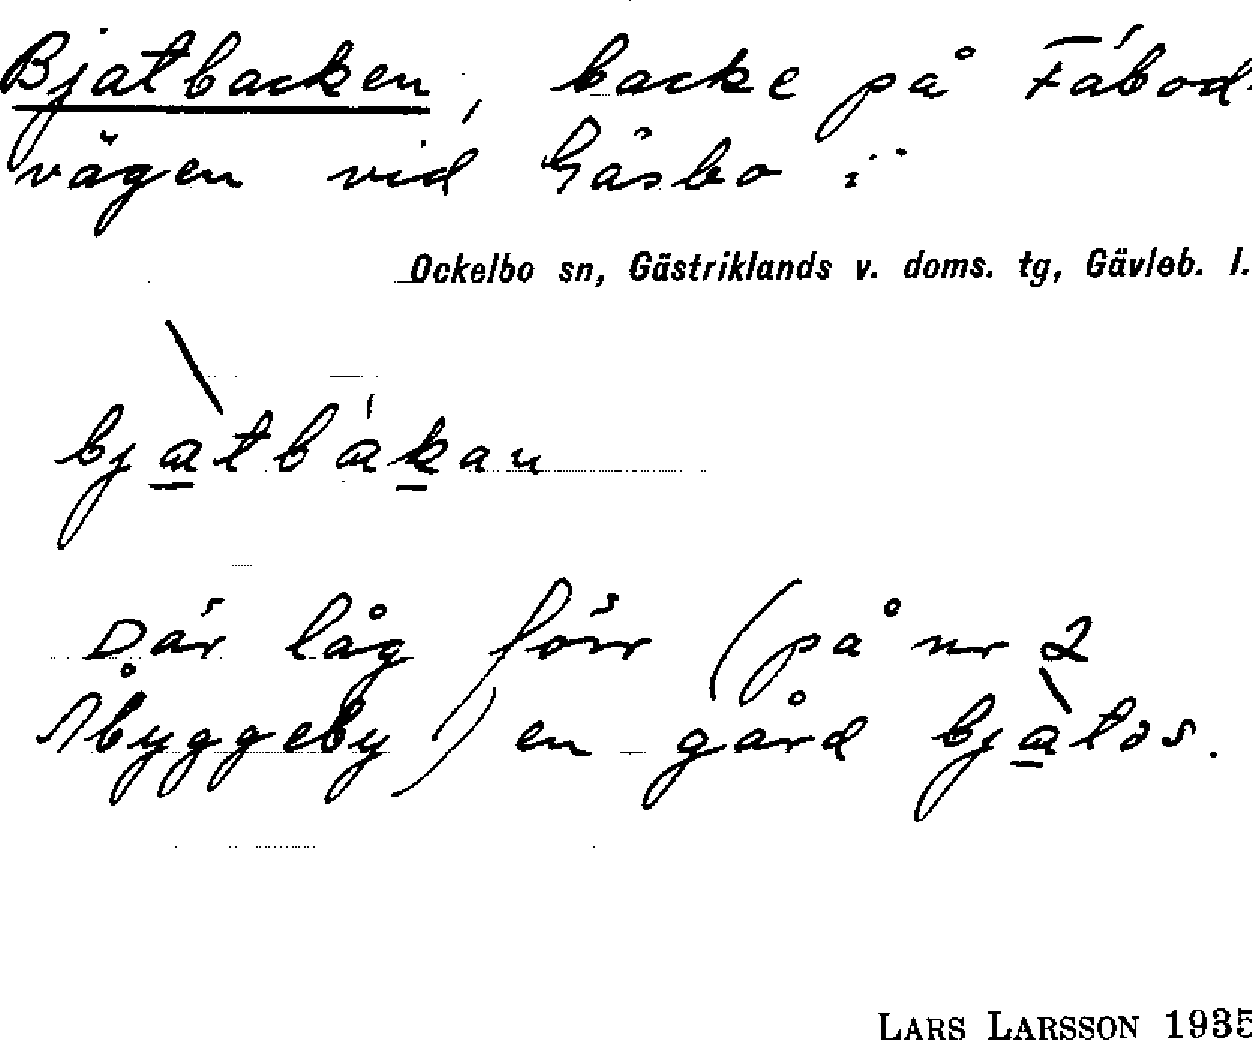 Bjatbacken, backe på Fäbod-
vägen vid Gåsbo i
Ockelbo sn, Gästriklands v. doms. tg, Gävleb. l.
bjatbákan
Där låg förr (på nr 2
Åbyggeby) en gård bjatos.
LARS LARSSON 1935